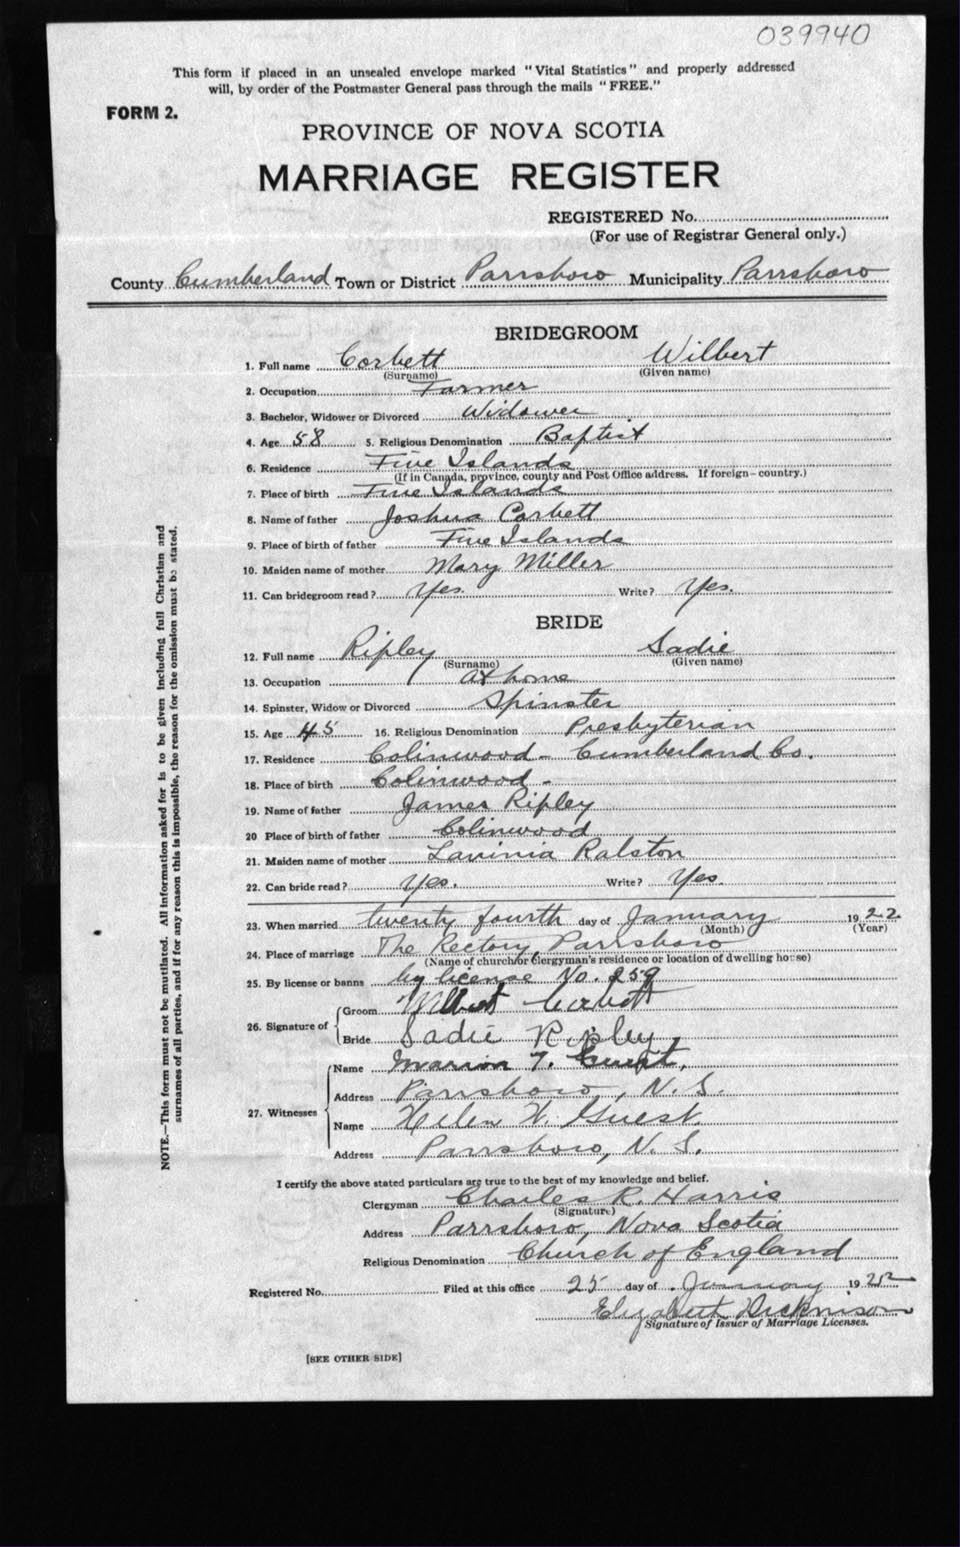 039940
This form if placed in an unsealed envelope marked "Vital Statistics" and properly addressed
will, by order of the Postmaster General pass through the mails "FREE."
FORM 2.
PROVINCE OF NOVA SCOTIA
MARRIAGE REGISTER
REGISTERED No.
(For use of Registrar General only.)
County Cumberland Town or District Parrsboro Municipality Parrsboro
BRIDEGROOM
1. Full name Corbett Wilbert
(Surname) (Given name)
2. Occupation Farmer
3. Bachelor, Widower or Divorced Widower
4. Age 58 5. Religious Denomination Baptist
6. Residence Five Islands
(If in Canada, province, county and Post Office address. If foreign-country.)
7. Place of birth Five Islands
8. Name of father Joshua Corbett
9. Place of birth of father Five Islands
10. Maiden name of mother Mary Miller
11. Can bridegroom read? Yes. Write? Yes.
BRIDE
12. Full name Ripley Sadie
(Surname) (Given name)
13. Occupation At home
14. Spinster, Widow or Divorced Spinster
15. Age 45 16. Religious Denomination Presbyterian
17. Residence Colinwood - Cumberland Co.
18. Place of birth Colinwood -
19. Name of father James Ripley
20 Place of birth of father Colinwood
21. Maiden name of mother Lavinia Ralston
22. Can bride read? Yes. Write? Yes.
23. When married twenty fourth day of January 1922
(Month) (Year)
24. Place of marriage The Rectory, Parrsboro
(Name of church/or clergyman's residence or location of dwelling house)
25. By license or banns by license No. 259
26. Signature of Groom Wilbert Corbett
Bride Sadie Ripley
27. Witnesses
Name Marion T. Guest,
Address Parrsboro, N. S.
Name Helen W. Guest.
Address Parrsboro, N. S.
I certify the above stated particulars are true to the best of my knowledge and belief.
Clergyman Charles R. Harris
(Signature)
Address Parrsboro, Nova Scotia
Religious Denomination Church of England
Registered No. Filed at this office 25 day of January 1922
Elizabeth Dickinson
Signature of Issuer of Marriage Licenses.
[SEE OTHER SIDE]
NOTE.—This form must not be mutilated. All information asked for is to be given including full Christian and
surnames of all parties, and if for any reason this is impossible, the reason for the omission must be stated.